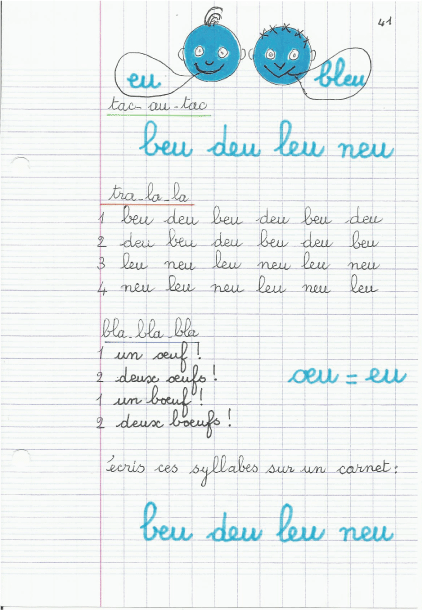 41
eu
bleu
tac-au-tac
beu deu leu neu
tra-la-la
1 beu deu beu deu beu deu
2 deu beu deu beu deu beu
3 leu neu leu neu leu neu
4 neu leu neu leu neu leu
bla-bla-bla
1 un œuf !
2 deux œufs !
œu = eu
1 un bœuf !
2 deux bœufs !
écris ces syllabes sur un carnet :
beu deu leu neu